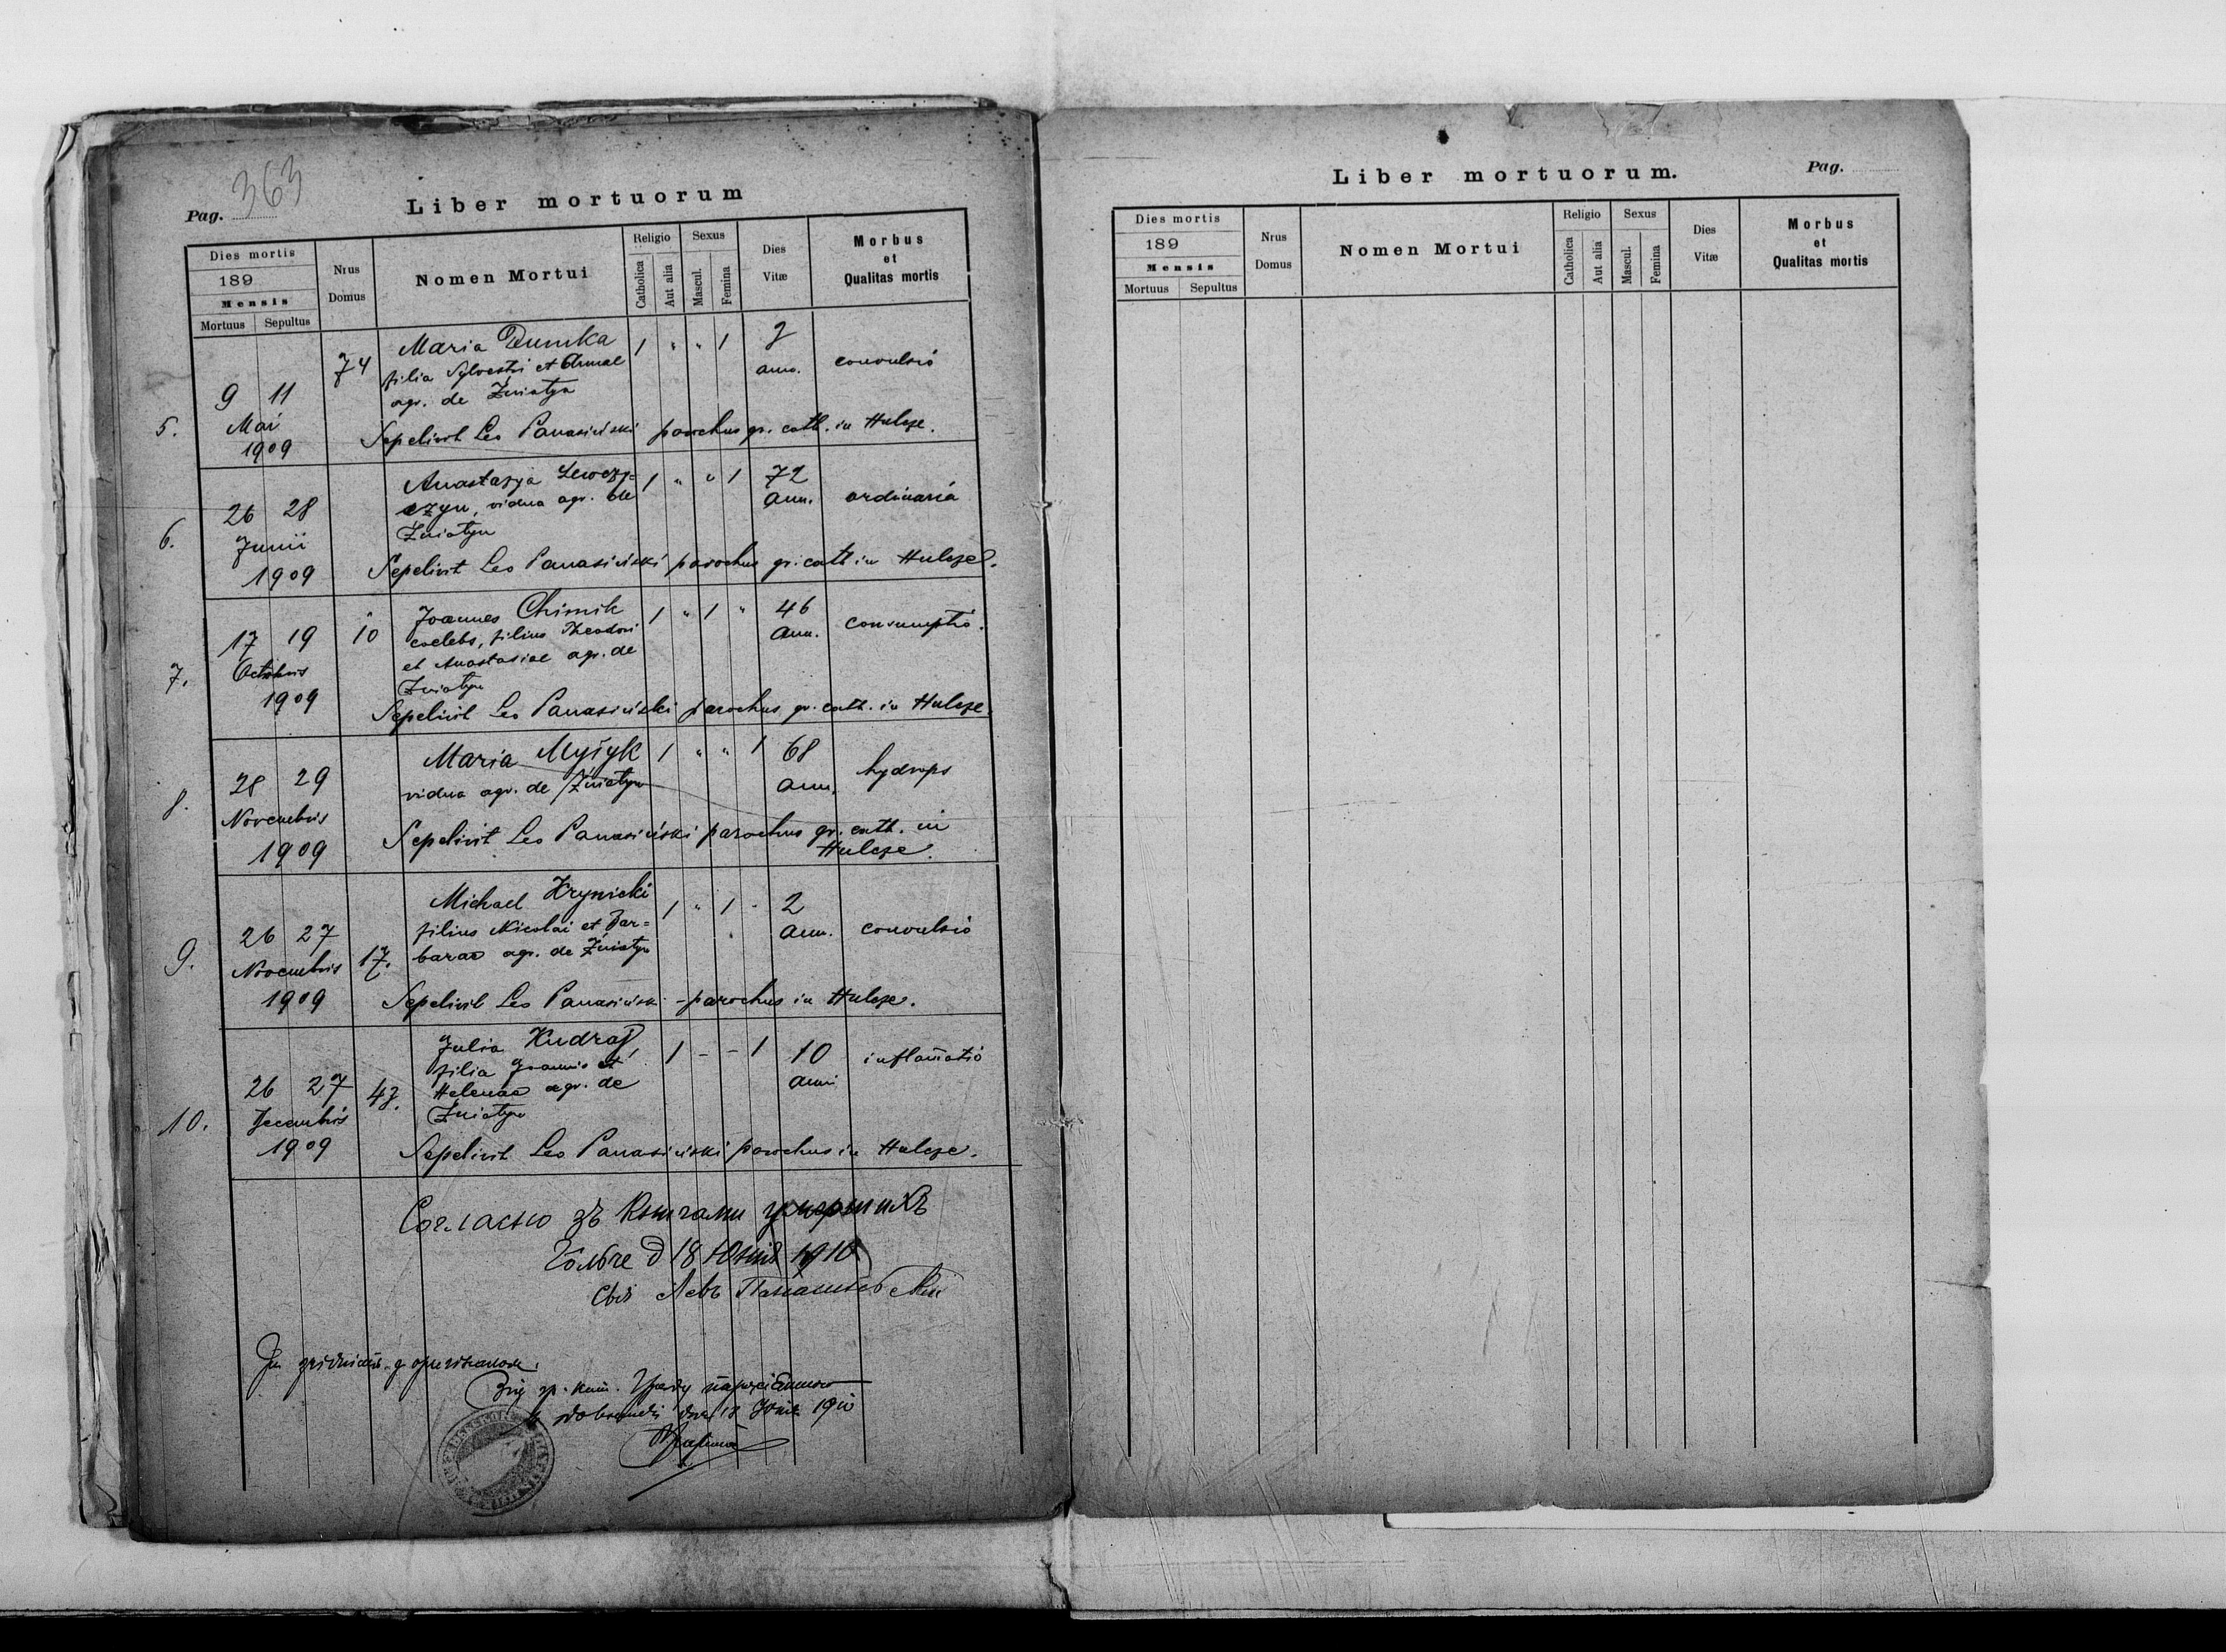 363
Pag.
Liber mortuorum
Dies mortis
189
Mensis
Mortuus Sepultus
Nrus Domus
Nomen Mortui
Religio
Catholica Aut alia
Sexus
Mascul. Femina
Dies Vitæ
Morbus et Qualitas mortis
5. 9 11 Mai 1909
74
Maria Dumka 1 " " 1 2 ann. convulsio
filia Sylvestri et Annae
agr. de Żniatyn
Sepelivit Leo Panasiński parochus gr. cath. in Hulcze.
6. 26 28 Junii 1909
Anastazya Lewczy= 1 " " 1 72 ann. ordinaria
czyn, vidua agr. de
Żniatyn
Sepelivit Leo Panasiński parochus gr. cath in Hulcze.
7. 17 19 Octobris 1909
10
Joannes Chimik 1 " 1 " 46 ann. consumptio.
coelebs, filius Theodori
et Anastasiae agr. de
Żniatyn
Sepelivit Leo Panasiński parochus gr. cath. in Hulcze.
8. 28 29 Novembris 1909
Maria Mysyk 1 " " 1 68 ann. hydrops
vidua agr. de Żniatyn
Sepelivit Leo Panasiński parochus gr. cath. in
Hulcze.
9. 26 27 Novembris 1909
17.
Michael Krynicki 1 " 1 " 2 ann. convulsio
filius Nicolai et Bar=
barae agr. de Żniatyn
Sepelivit Leo Panasiński - parochus in Hulcze.
10. 26 27 Decembris 1909
43.
Julia Kudraj, 1 - - 1 10 anni inflam̄atio
filia Joannis et
Helenae agr. de
Żniatyn
Sepelivit Leo Panasiński parochus in Hulcze.
Согласно зъ Книгами умершихъ
д 18 Юнія 1910
Левъ
18 1910
Liber mortuorum.
Pag.
Dies mortis
189
Mensis
Mortuus Sepultus
Nrus Domus
Nomen Mortui
Religio
Catholica Aut alia
Sexus
Mascul. Femina
Dies Vitæ
Morbus et Qualitas mortis